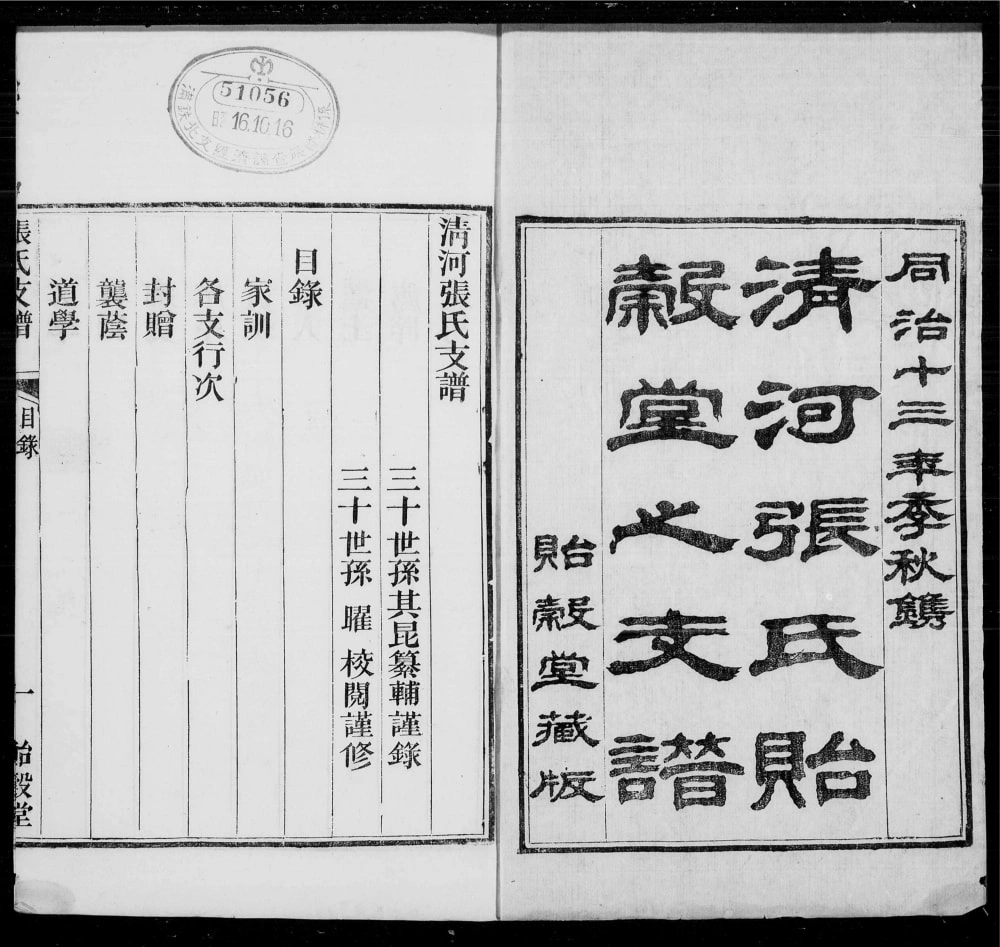 同治十三年季秋鐫
清河張氏貽
穀堂之支譜
貽穀堂藏版
51056
昭 16.10.16
清河張氏支譜
三十世孫其昆纂輔謹錄
三十世孫 曜 校閱謹修
目錄
家訓
各支行次
封贈
襲蔭
道學
張氏支譜
目錄
一
貽穀堂